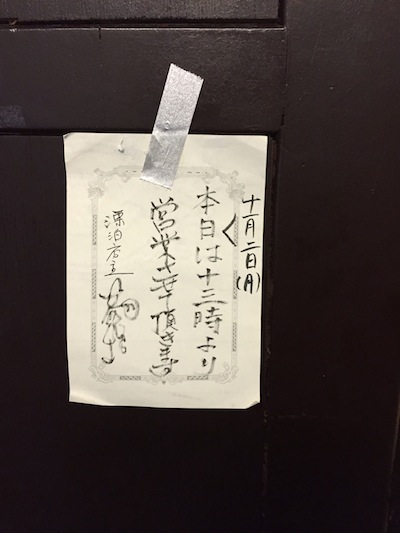 十一月二日(月)
本日は十三時より
営業させて頂きます